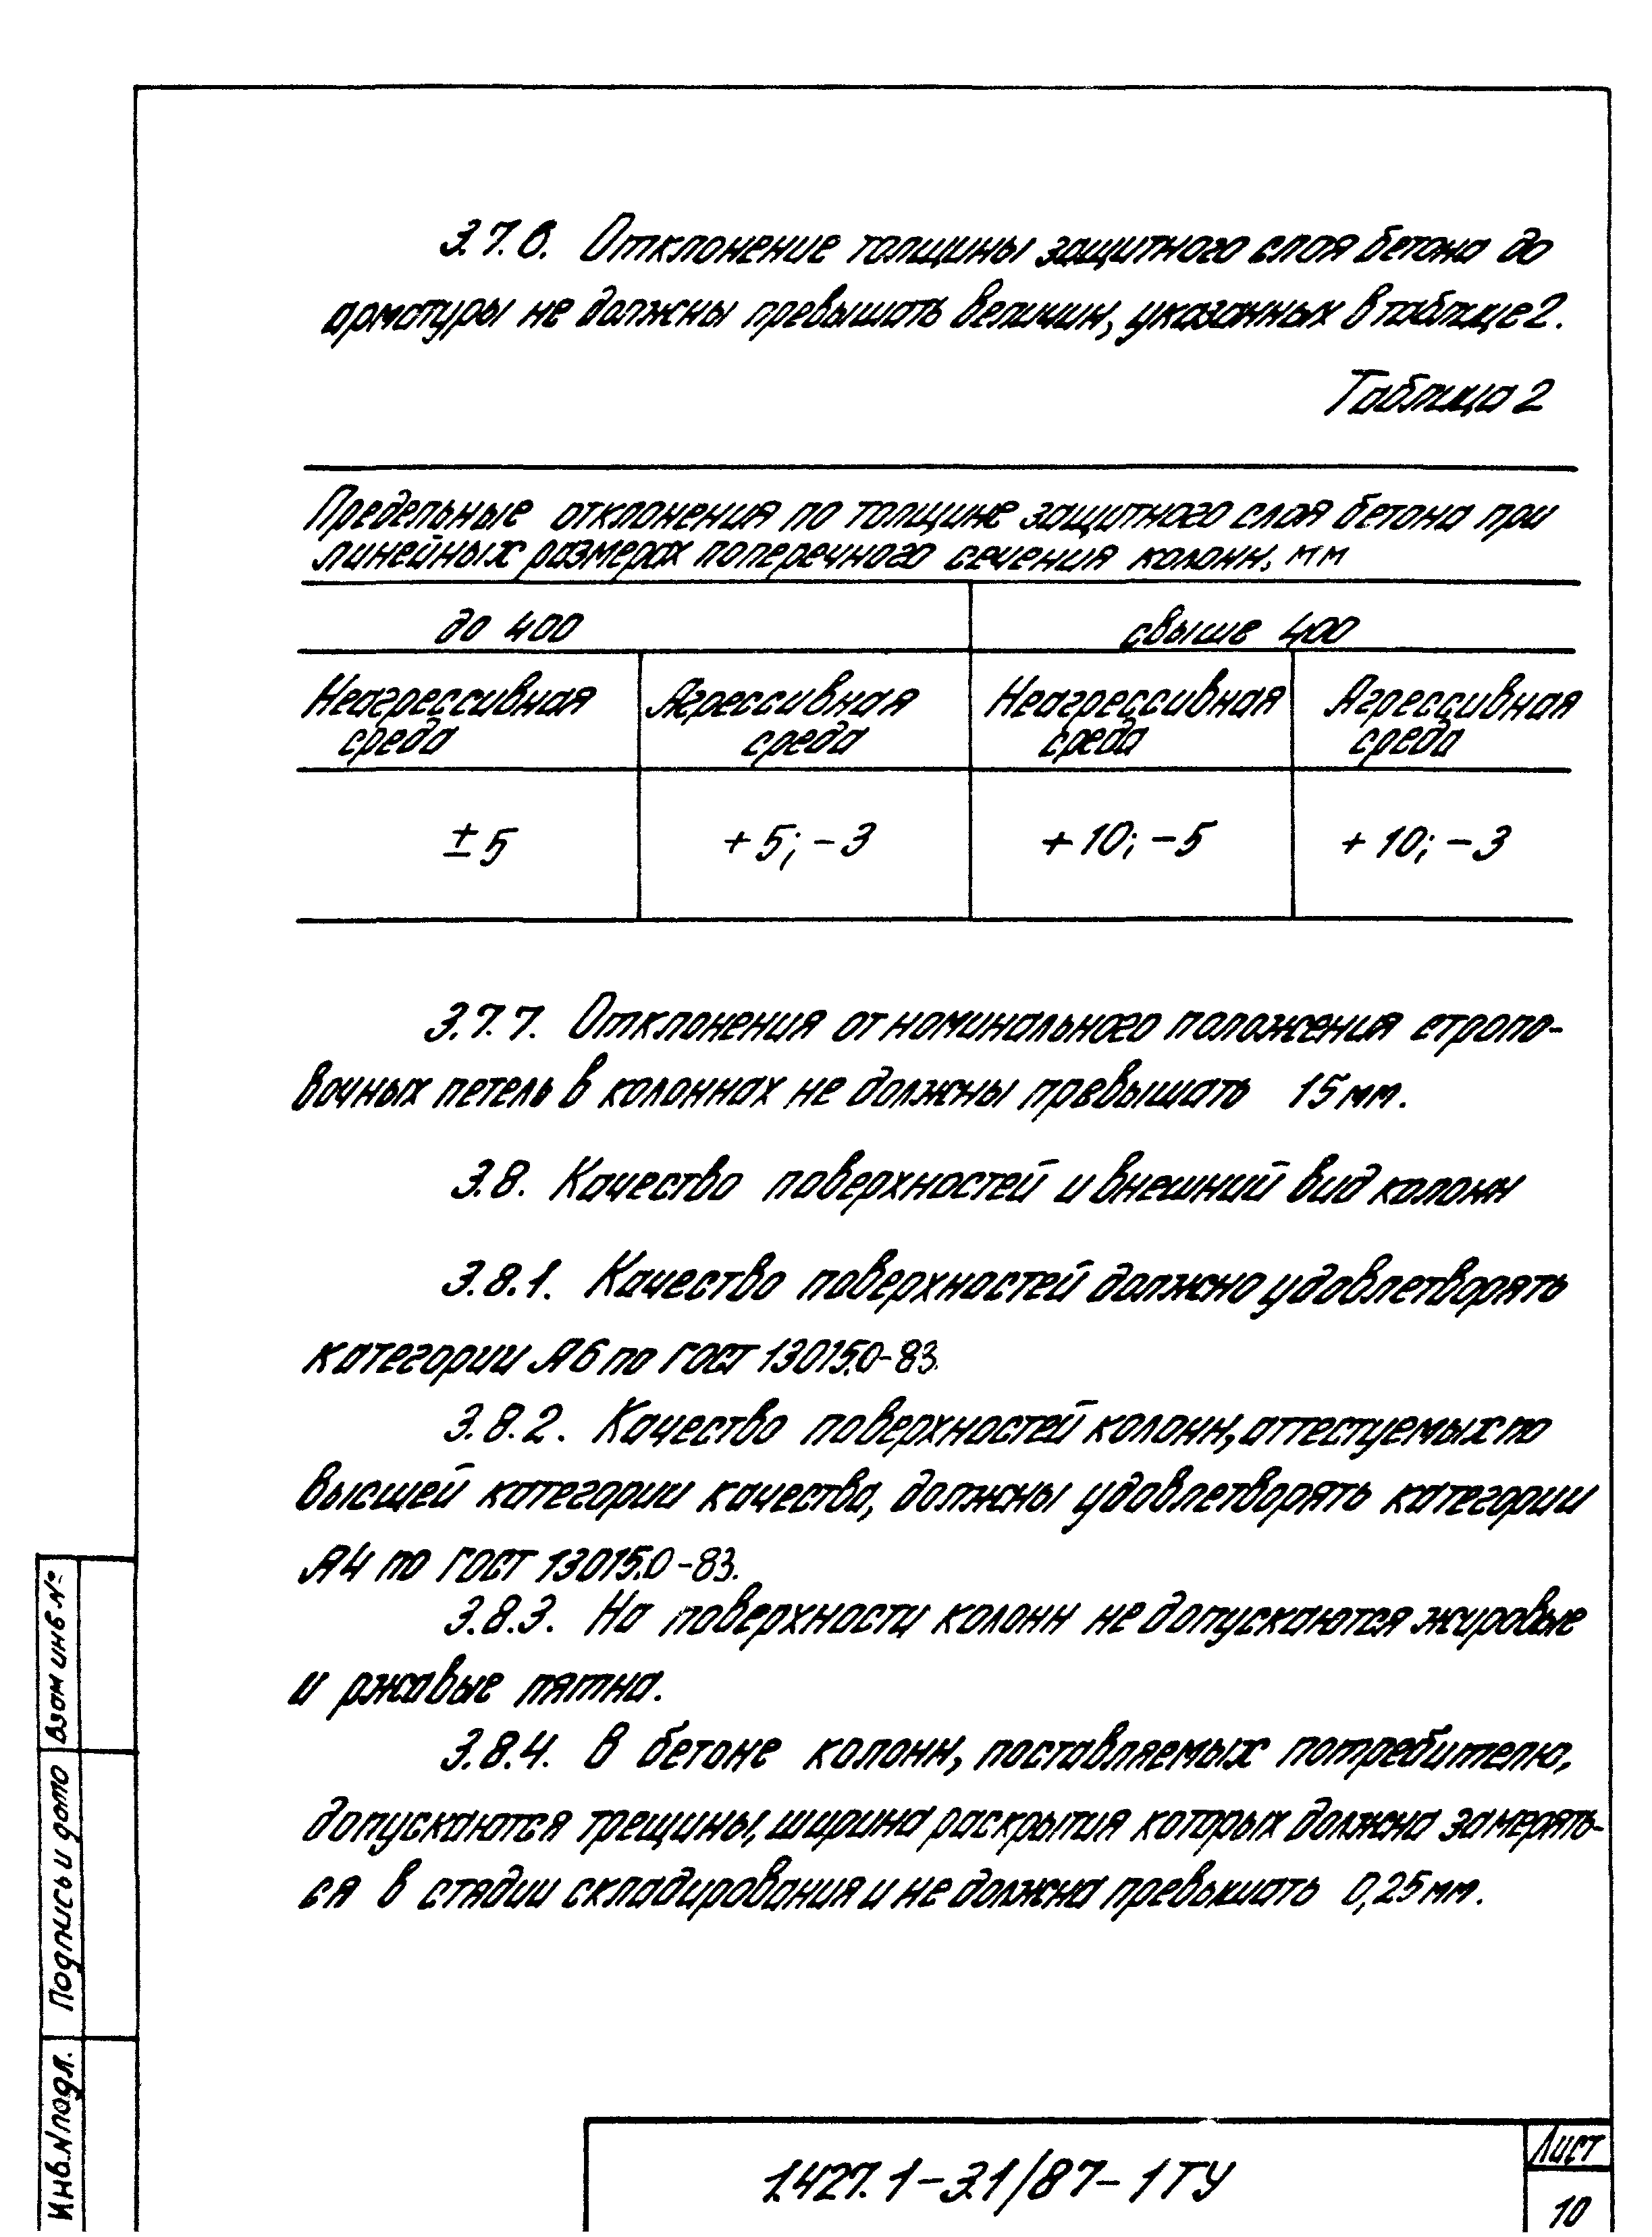 3.7.6. Отклонение толщины защитного слоя бетона до
арматуры не должны превышать величин, указанных в таблице 2.
Таблица 2
Предельные отклонения по толщине защитного слоя бетона при
линейных размерах поперечного сечения колонн, мм
до 400
свыше 400
Неагрессивная среда
Агрессивная среда
Неагрессивная среда
Агрессивная среда
± 5
+ 5; - 3
+ 10; - 5
+ 10; - 3
3.7.7. Отклонения от номинального положения стропо-
вочных петель в колоннах не должны превышать 15 мм.
3.8. Качество поверхностей и внешний вид колонн
3.8.1. Качество поверхностей должно удовлетворять
категории А6 по ГОСТ 13015.0-83.
3.8.2. Качество поверхностей колонн, аттестуемых по
высшей категории качества, должны удовлетворять категории
А4 по ГОСТ 13015.0-83.
3.8.3. На поверхности колонн не допускаются жировые
и ржавые пятна.
3.8.4. В бетоне колонн, поставляемых потребителю,
допускаются трещины, ширина раскрытия которых должна замерять-
ся в стадии складирования и не должна превышать 0,25 мм.
Взам инв №
Подпись и дата
Инв. № подл.
1.427.1-3.1/87-1ТУ
Лист
10